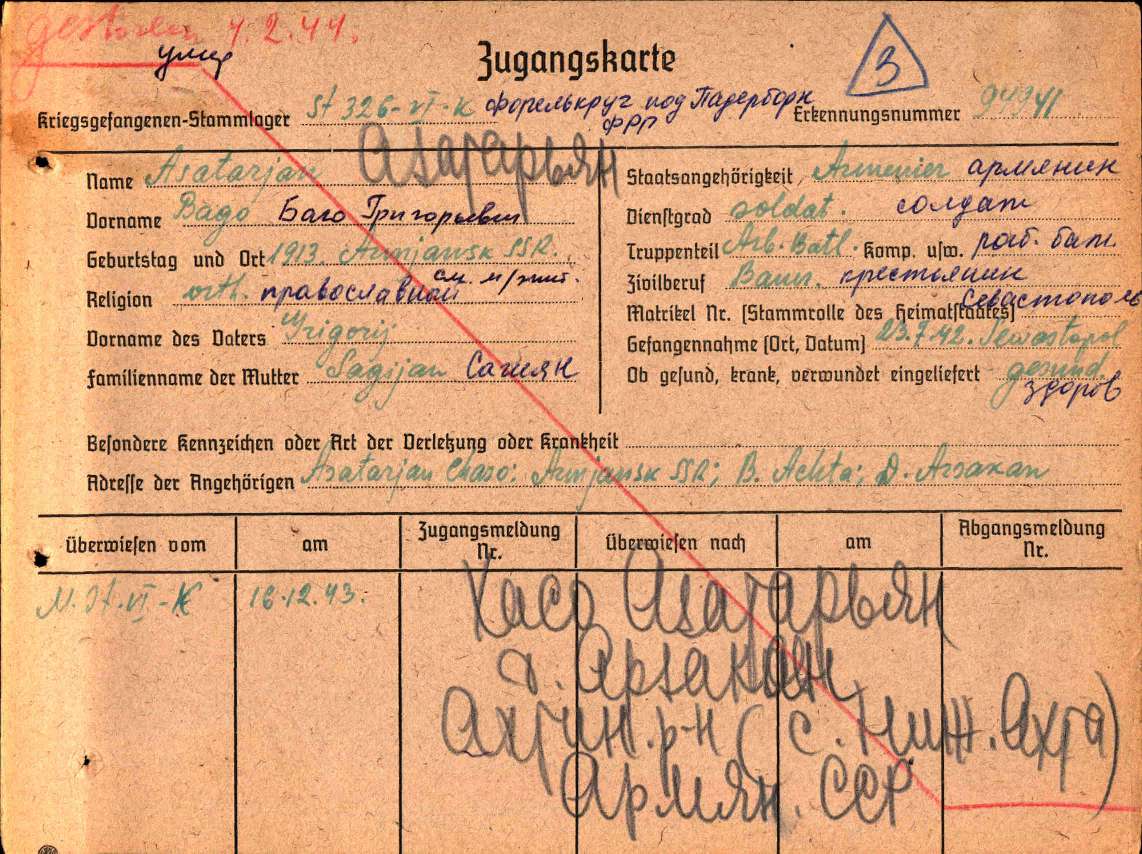 gestorben 4.2.44.
умер
Zugangskarte
3
Kriegsgefangenen-Stammlager St 326-VI-K форелькруг под Падерборн Erkennungsnummer 94941
ФРГ
Name Asatarjan Азатарьян
Staatsangehörigkeit Armenier армянин
Vorname Bago Баго Григорьевич
Dienstgrad soldat. солдат
Geburtstag und Ort 1913. Armjansk SSR.
Truppenteil Arb. Batl. Komp. usw. раб. бат.
см. м/жит.
Religion orth. православной
Zivilberuf Bauer. крестьянин
Matrikel Nr. (Stammrolle des Heimatstaates)
Севастополь
Vorname des Vaters Grigorij
Gefangennahme (Ort, Datum) 23.7.42. Sewastopol
Familienname der Mutter Sagijan Сагиян
Ob gesund, krank, verwundet eingeliefert gesund.
здоров
Besondere Kennzeichen oder Art der Verletzung oder Krankheit
Adresse der Angehörigen Asatarjan Chaso: Armjansk SSR; B. Achta; D. Arsakan
Überwiesen vom am Zugangsmeldung Nr. Überwiesen nach am Abgangsmeldung Nr.
M. St. VI-K 16.12.43.
Хасо Азатарьян
д. Арзакан
Ахтин. р-н (с. Ниж. Ахта)
Армян. ССР